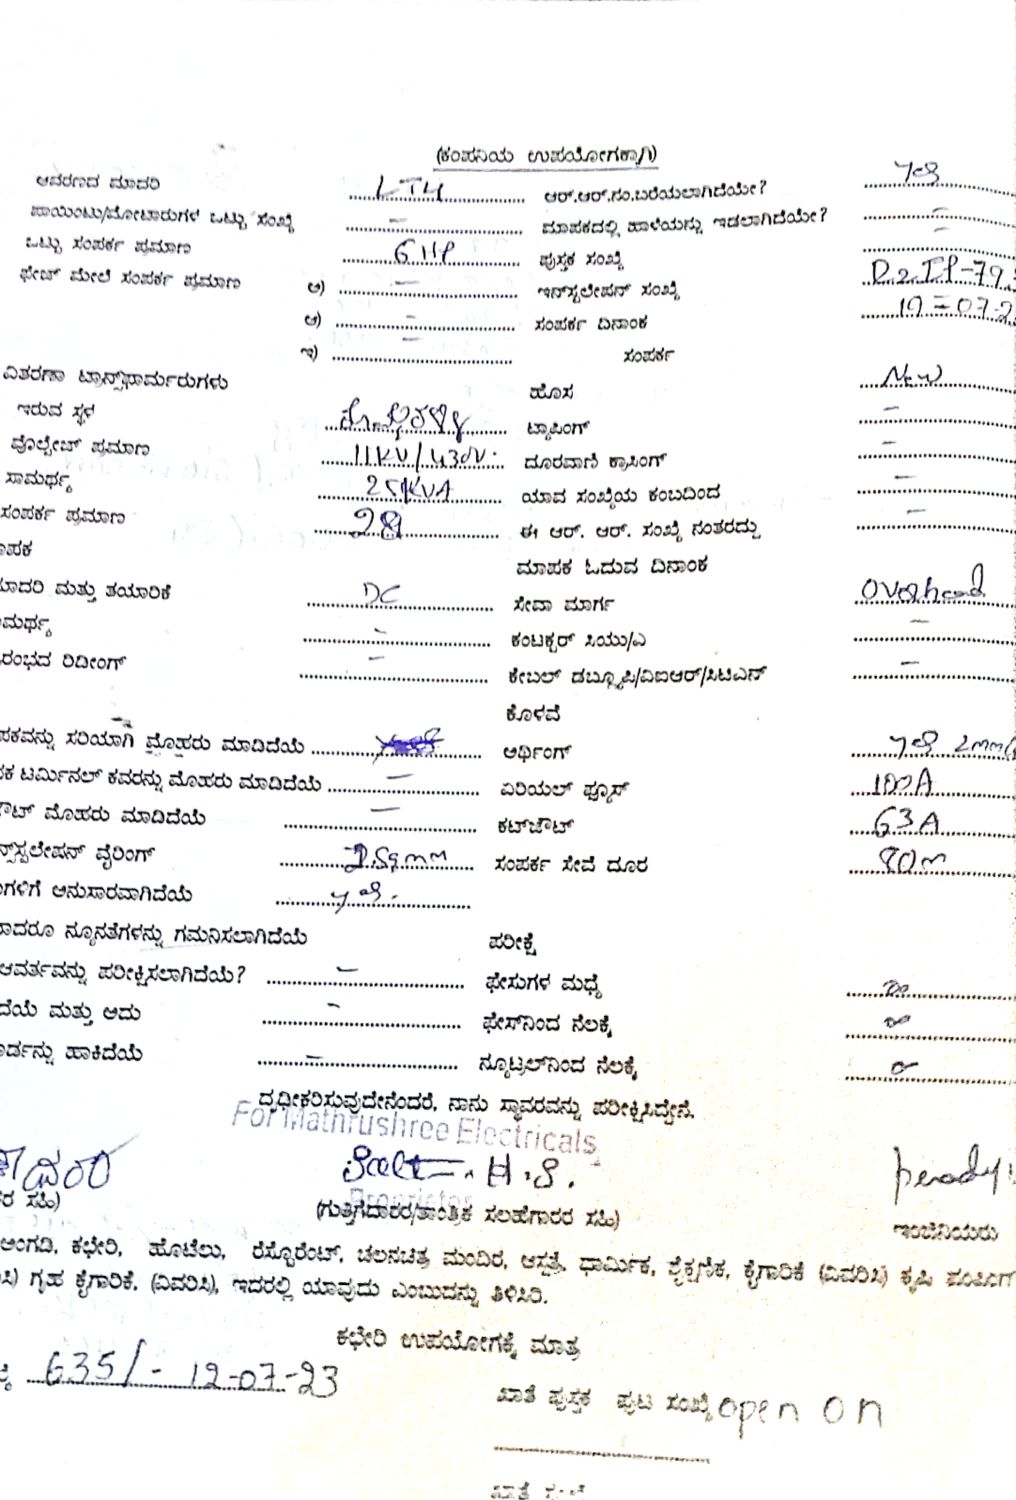 (ಕಂಪನಿಯ ಉಪಯೋಗಕ್ಕಾಗಿ)
ಆವರಣದ ಮಾದರಿ LT4 ಆರ್.ಆರ್.ನಂ.ಬರೆಯಲಾಗಿದೆಯೇ?
ಪಾಯಿಂಟು/ಮೋಟಾರುಗಳ ಒಟ್ಟು ಸಂಖ್ಯೆ - ಮಾಪಕದಲ್ಲಿ ಹಾಳೆಯನ್ನು ಇಡಲಾಗಿದೆಯೇ? -
ಒಟ್ಟು ಸಂಪರ್ಕ ಪ್ರಮಾಣ 6 HP ಪುಸ್ತಕ ಸಂಖ್ಯೆ -
ಫೇಜ್ ಮೇಲೆ ಸಂಪರ್ಕ ಪ್ರಮಾಣ ಅ) - ಇನ್‌ಸ್ಟಲೇಷನ್ ಸಂಖ್ಯೆ
ಆ) - ಸಂಪರ್ಕ ದಿನಾಂಕ
ಇ) - ಸಂಪರ್ಕ
ವಿತರಣಾ ಟ್ರಾನ್ಸ್‌ಫಾರ್ಮರುಗಳು ಹೊಸ New
ಇರುವ ಸ್ಥಳ ಟ್ಯಾಪಿಂಗ್ -
ವೋಲ್ಟೇಜ್ ಪ್ರಮಾಣ 11KV/430V. ದೂರವಾಣಿ ಕ್ರಾಸಿಂಗ್ -
ಸಾಮರ್ಥ್ಯ 25KVA ಯಾವ ಸಂಖ್ಯೆಯ ಕಂಬದಿಂದ -
ಸಂಪರ್ಕ ಪ್ರಮಾಣ ಈ ಆರ್. ಆರ್. ಸಂಖ್ಯೆ ನಂತರದ್ದು -
ಾಪಕ ಮಾಪಕ ಓದುವ ದಿನಾಂಕ
ಮಾದರಿ ಮತ್ತು ತಯಾರಿಕೆ DC ಸೇವಾ ಮಾರ್ಗ Overhead
ಾಮರ್ಥ್ಯ - ಕಂಟಕ್ಟರ್ ಸಿಯು/ಎ -
ರಂಭದ ರಿಡೀಂಗ್ - ಕೇಬಲ್ ಡಬ್ಲ್ಯೂಪಿ/ವಿಐಆರ್/ಸಿಟಿಎನ್ -
ಕೊಳವೆ
ಪಕವನ್ನು ಸರಿಯಾಗಿ ಮೊಹರು ಮಾಡಿದೆಯೆ ಅರ್ಥಿಂಗ್
ಪಕ ಟರ್ಮಿನಲ್ ಕವರನ್ನು ಮೊಹರು ಮಾಡಿದೆಯೆ - ಏರಿಯಲ್ ಫ್ಯೂಸ್ 100A
ಔಟ್ ಮೊಹರು ಮಾಡಿದೆಯೆ - ಕಟ್‌ಔಟ್ 63A
ನ್ಸ್‌ಸ್ಟಲೇಷನ್ ವೈರಿಂಗ್ ಸಂಪರ್ಕ ಸೇವೆ ದೂರ 80m
ುಗಳಿಗೆ ಅನುಸಾರವಾಗಿದೆಯೆ
ಾದರೂ ನ್ಯೂನತೆಗಳನ್ನು ಗಮನಿಸಲಾಗಿದೆಯೆ ಪರೀಕ್ಷೆ
ಆವರ್ತವನ್ನು ಪರೀಕ್ಷಿಸಲಾಗಿದೆಯೆ? - ಫೇಸುಗಳ ಮಧ್ಯೆ
ದೆಯೆ ಮತ್ತು ಅದು - ಫೇಸ್‌ನಿಂದ ನೆಲಕ್ಕೆ
ರ್ಡನ್ನು ಹಾಕಿದೆಯೆ - ನ್ಯೂಟ್ರಲ್‌ನಿಂದ ನೆಲಕ್ಕೆ
ದೃಢೀಕರಿಸುವುದೇನೆಂದರೆ, ನಾನು ಸ್ಥಾವರವನ್ನು ಪರೀಕ್ಷಿಸಿದ್ದೇನೆ.
For Mathrushree Electricals
Proprietor
ರ ಸಹಿ) (ಗುತ್ತಿಗೆದಾರರ/ತಾಂತ್ರಿಕ ಸಲಹೆಗಾರರ ಸಹಿ) ಇಂಜಿನಿಯರು
ಅಂಗಡಿ, ಕಛೇರಿ, ಹೊಟೆಲು, ರೆಸ್ಟೋರೆಂಟ್, ಚಲನಚಿತ್ರ ಮಂದಿರ, ಆಸ್ಪತ್ರೆ, ಧಾರ್ಮಿಕ, ಶೈಕ್ಷಣಿಕ, ಕೈಗಾರಿಕೆ (ವಿವರಿಸಿ) ಕೃಷಿ ಪಂಪಿಂಗ್
ಸಿ) ಗೃಹ ಕೈಗಾರಿಕೆ, (ವಿವರಿಸಿ), ಇದರಲ್ಲಿ ಯಾವುದು ಎಂಬುದನ್ನು ತಿಳಿಸಿರಿ.
ಕಛೇರಿ ಉಪಯೋಗಕ್ಕೆ ಮಾತ್ರ
635/- 12-07-23
ಖಾತೆ ಪುಸ್ತಕ ಪುಟ ಸಂಖ್ಯೆ open on